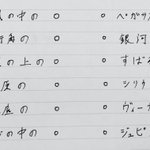 の中の ○ ○ ペガサ
角の ○ ○ 銀河
の上の ○ ○ すば
原の ○ ○ シリウ
底の ○ ○ ヴィー
の中の ○ ○ ジュピ